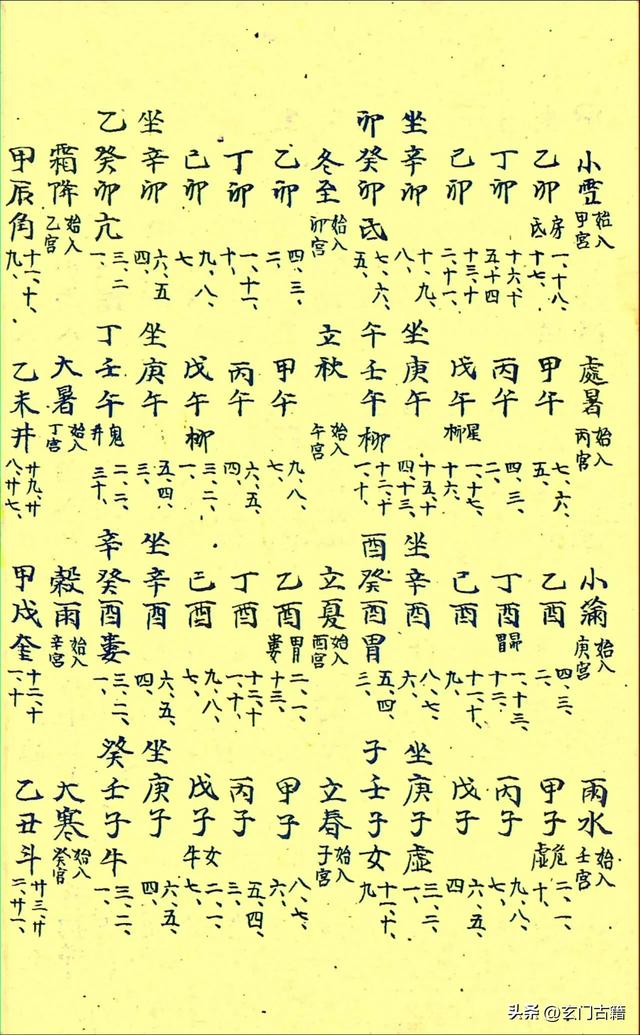 小雪始入甲宮
乙卯房氐一、十八、十七、
丁卯十六、十五十四
己卯十三、十二、十一、
坐辛卯十、九、八、
卯癸卯氐七、六、五、
冬至始入卯宮
乙卯四、三、二、
丁卯一、十一、十、
己卯九、八、七
坐辛卯六、五四、
乙癸卯亢三、二一、
霜降始入乙宮
甲辰角十一、十、九、
處暑始入丙宮
甲午七、六、五、
丙午四、三、二、
戊午星柳一、十七、十六、
坐庚午十五、十四、十三、
午壬午柳十二、十一、十、
立秋始入午宮
甲午九、八、七、
丙午六、五、四、
戊午柳三、二、一、
坐庚午五、四、三、
丁壬午鬼井二、二、三十、
大暑始入丁宮
乙未井廿九、廿八、廿七、
小滿始入庚宮
乙酉四、三、二、
丁酉昴胃一、十三、十二、
己酉十一、十、九、
坐辛酉八、七、六、
酉癸酉胃五、四、三、
立夏始入酉宮
乙酉胃婁二、一、十三、
丁酉十二、十一、十、
己酉九、八、七、
坐辛酉六、五、四、
辛癸酉婁三、二、一、
穀雨始入辛宮
甲戌奎十二、十一、十
雨水始入壬宮
甲子危虛二、一、十、
丙子九、八、七、
戊子六、五、四
坐庚子虛三、二、一、
子壬子女十一、十、九
立春始入子宮
甲子八、七、六、
丙子五、四、三、
戊子女牛二、一、七、
坐庚子六、五、四、
癸壬子牛三、二、一、
大寒始入癸宮
乙丑斗廿三、廿二、廿一、
头条 @玄门古籍